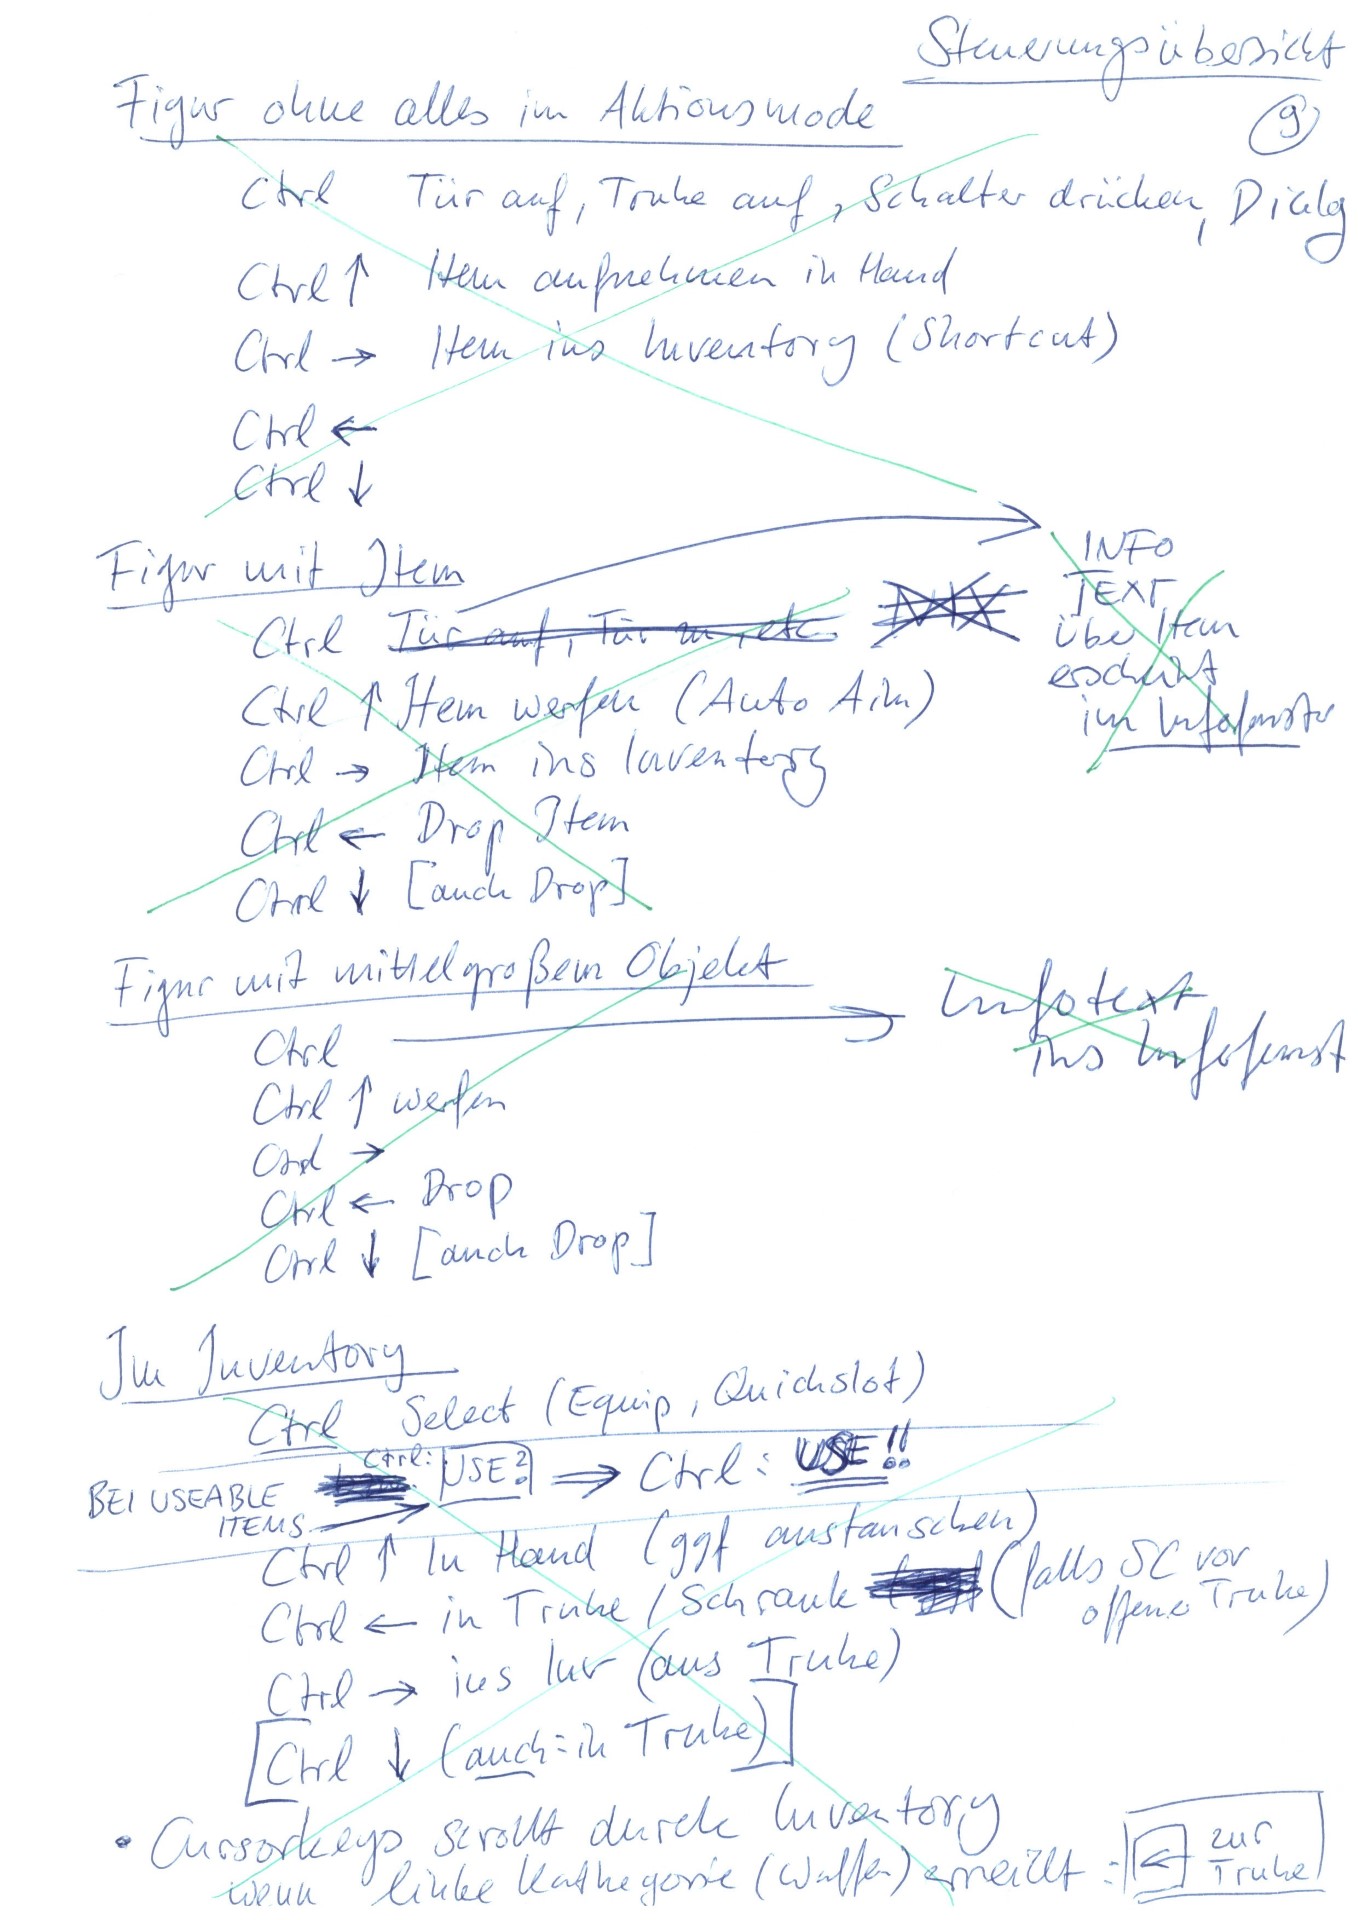 Steuerungsübersicht
9
Figur ohne alles im Aktionsmode
Ctrl Tür auf, Truhe auf, Schalter drücken, Dialog
Ctrl ↑ Item aufnehmen in Hand
Ctrl → Item ins Inventory (Shortcut)
Ctrl ←
Ctrl ↓
Figur mit Item
Ctrl Tür auf, Tür zu, etc.
INFO
TEXT
über Item
erscheint
im Infofenster
Ctrl ↑ Item werfen (Auto Aim)
Ctrl → Item ins Inventory
Ctrl ← Drop Item
Ctrl ↓ [auch Drop]
Figur mit mittelgroßem Objekt
Ctrl
Infotext
ins Infofenst
Ctrl ↑ werfen
Ctrl →
Ctrl ← Drop
Ctrl ↓ [auch Drop]
Im Inventory
Ctrl Select (Equip, Quickslot)
BEI USEABLE
ITEMS → Ctrl: USE? ⇒ Ctrl: USE!!
Ctrl ↑ In Hand (ggf austauschen)
Ctrl ← in Truhe / Schrank (falls SC vor
offener Truhe)
Ctrl → ins Inv (aus Truhe)
[Ctrl ↓ (auch: in Truhe)]
• Cursorkeys scrollt durch Inventory
wenn linke Kathegorie (Waffen) erreicht: ← zur
Truhe